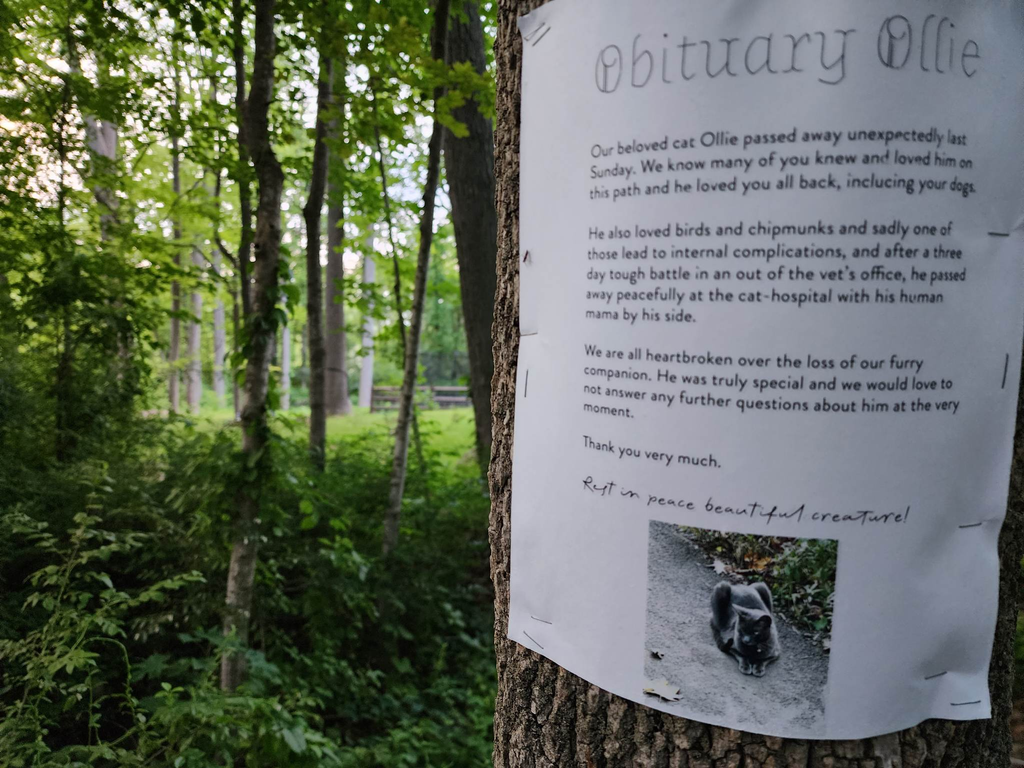 Obituary Ollie
Our beloved cat Ollie passed away unexpectedly last
Sunday. We know many of you knew and loved him on
this path and he loved you all back, including your dogs.
He also loved birds and chipmunks and sadly one of
those lead to internal complications, and after a three
day tough battle in an out of the vet's office, he passed
away peacefully at the cat-hospital with his human
mama by his side.
We are all heartbroken over the loss of our furry
companion. He was truly special and we would love to
not answer any further questions about him at the very
moment.
Thank you very much.
Rest in peace beautiful creature!